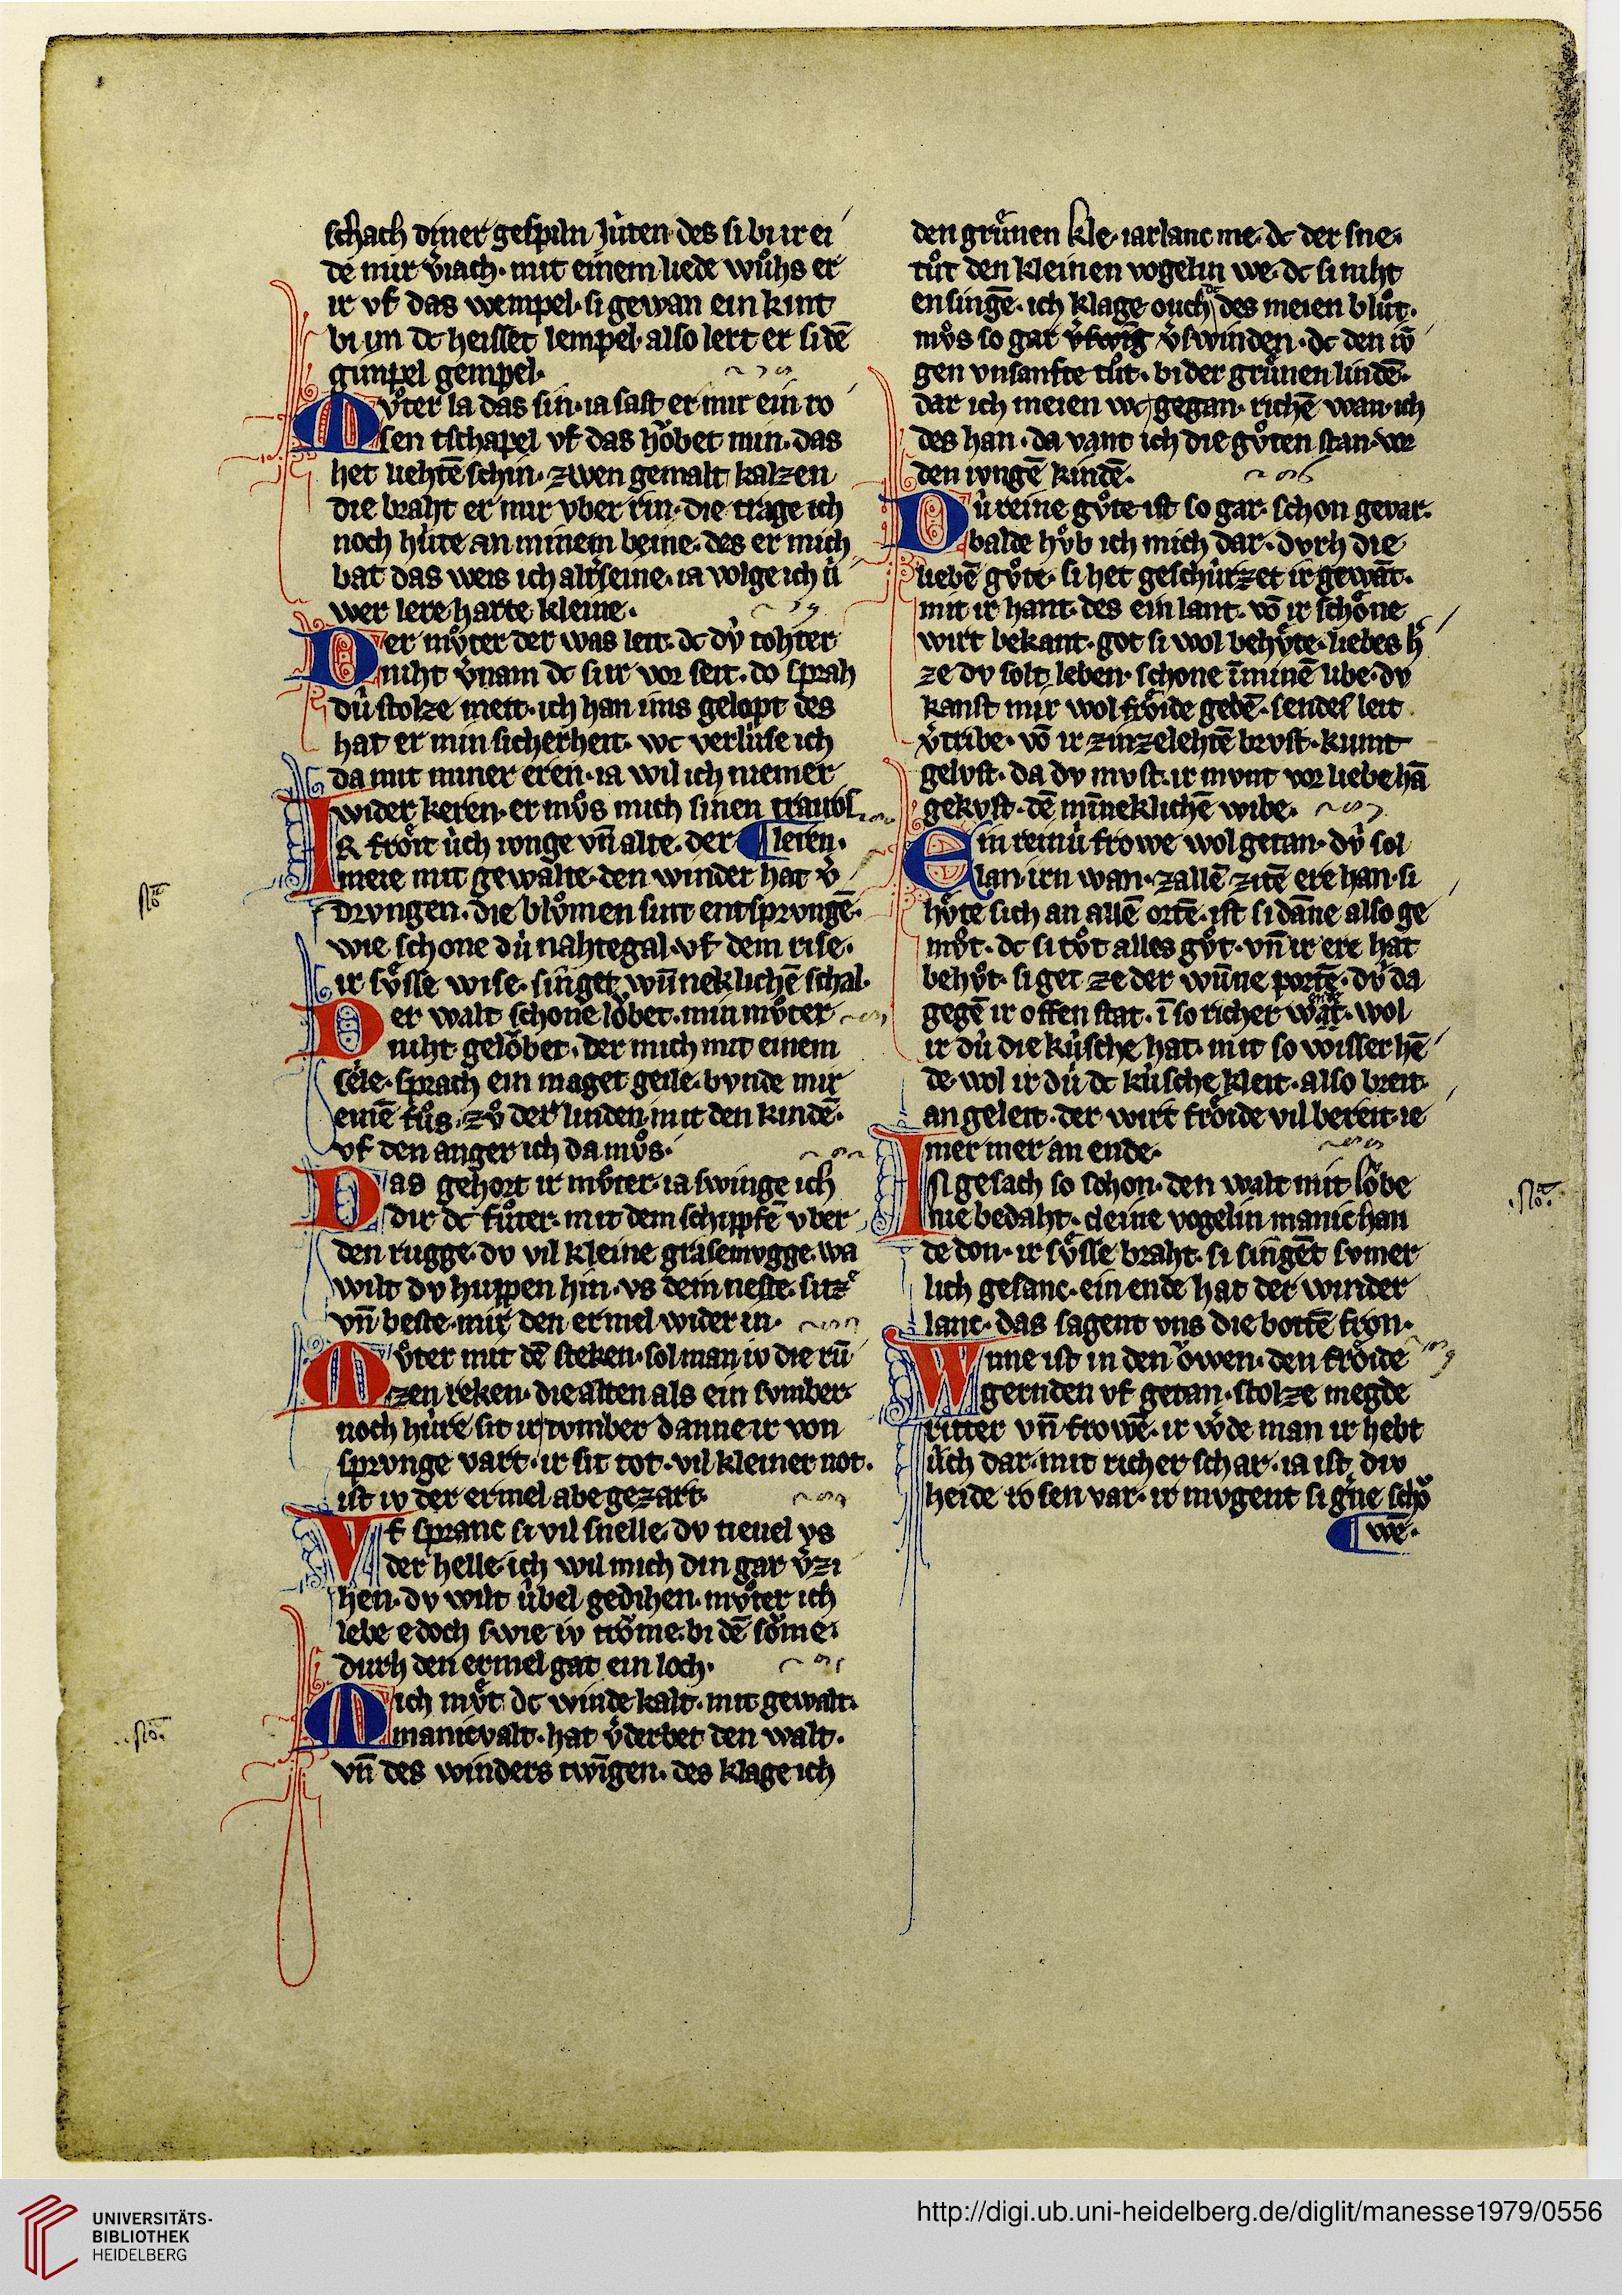 schach diner gespiln Jv̀ten· des si bi ir ei
de mir v̓iach· mit einem liede wůhs er
ir vf das wempel· si gewan ein kint
bi im dc heisset lempel· also lert er si dē
gimpel gempel·
Mv̊ter la das sin· ia sast er mir ein ro
sen tschapel vf das hŏbet min· das
het liehtē schin· zwen gemalt kalzen
die braht er mir vber rin· die trage ich
noch hùte an minem beine· des er mich
bat das weis ich altseine· ia volge ich ù
wer lere harte kleine·
Der mv̊ter der was leit· dc dv̀ tohter
niht v̓nam dc si ir vor seit· do sprah
dù stolze meit· ich han ims gelopt des
hat er min sicherheit· wc verlùse ich
da mit miner eren· ia wil ich niemer
wider keren· er mv̊s mich sinen traubs
Ir frŏit ùch ivnge vn̄ alte· der leren·
meie mit gewalte· den winder hat v̓
drvngen· die blůmen sint entsprvngē·
wie schone dù nahtegal· vf dem rise·
ir sv̊sse wise· singet wn̄neklichē schal·
Der walt schone lŏbet· min mv̊ter
niht gelŏbet· der mich mit einem
seile· sprach ein maget geile· bvnde mir
einē fůs· zv̊ der linden mit den kindē·
vf den anger ich da mv̊s·
Das gehort ir mv̊ter· ia swinge ich
dir dc fůter· mit dem schipfē vber
den rugge· dv vil kleine grasemvgge· wa
wilt dv huppen hin· vs dem neste· sitz͛
vn̄ beste· mir den ermel wider in·
Mv̊ter mit dē steken· sol man iv die rū
zen reken· die alten als ein svmber·
noch hùre sit ir tvmber danne ir von
sprvnge vart· ir sit tot· vil kleiner not·
ist iv der ermel abe gezart·
Vf spranc si vil snelle· dv tieuel vs
der helle· ich wil mich din gar v̓zi
hen· dv wilt ùbel gedihen· mv̊ter ich
lebe edoch swie iv trŏme· bi dē sŏme·
durh den ermel gat ein loch·
Mich mv̊t dc winde kalt· mit gewalt·
manicvalt· hat v̓derbet den walt·
vn̄ des winders twīgen· des klage ich
den grůnen kle· iarlanc me· dc der sne·
tůt den kleinen vogelin we· dc si niht
ensingē· ich klage ouch des meien blůt·
mv̊s so gar v̓swīg v̓swinden· dc den iv̄
gen vnsanfte tůt· bi der grůnen lindē·
dar ich meien wc gegan· richē wan· ich
des han· da vant ich die gv̊ten stan· vor
den ivngē kindē·
Dù reine gv̊te ist so gar· schon gevar·
balde hv̊b ich mich dar· dvrh die
liebē gv̊te· si het geschùrzet ir gewāt·
mit ir hant· des ein lant· vō ir schŏne
wirt bekant· got si wol behv̊te· liebes h͛
ze dv solt leben· schone ī minē libe· dv
kanst mir wol frŏide gebē· sendes leit
v̓tribe· vō ir zinzelehtē brvst· kvmt
gelvst· da dv mvst· ir mvnt vor liebe hā
gekvst· dē mīneklichē wibe·
Ein reinù frowe wol getan· dv̀ sol
lan· irn wan· zallē zitē ere han· si
hv̊te sich an allē ortē· ist si dāne also ge
mv̊t· dc si tv̊t alles gv̊t· vn̄ ir ere hat
behv̊t· si get ze der wn̄ne portē· dv̀ da
gegē ir offen stat· ī so richer wāt· wol
ir dù die kùsche hat· mit so wisser hē
de· wol ir dù dc kùsche kleit· also breit
an geleit· der wirt frŏide vil bereit· ie
mer mer an ende·
In gesach so schon· den walt mit lŏbe
nie bedaht· cleine vogelin manichan
de don· ir sv̊sse braht· si singēt svmer
lich gesanc· ein ende hat der winder
lanc· das sagent vns die bottē fron·
Wnne ist in den ŏwen· den frŏide
gernden vf getan· stolze megde
ritter vn̄ frowē· ir w͛de man ir hebt
ùch dar· mit richer schar· ia ist div
heide rosen var· ir mvgent si g͛ne schŏ
we·
No
No
No
UNIVERSITÄTS-
BIBLIOTHEK
HEIDELBERG
http://digi.ub.uni-heidelberg.de/diglit/manesse1979/0556